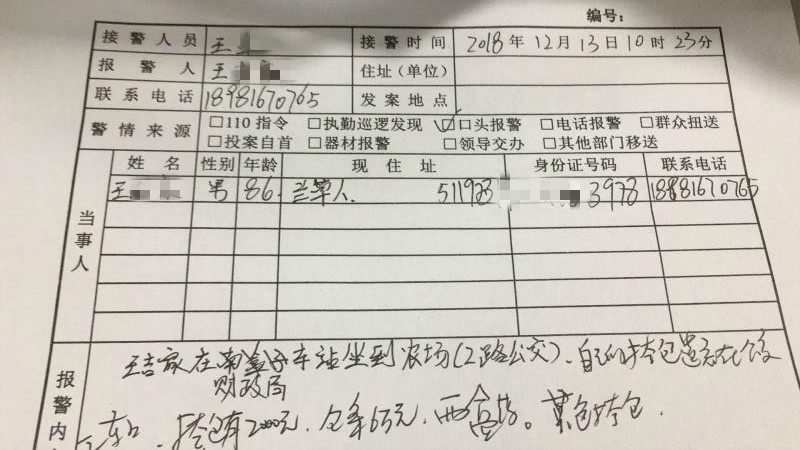 编号：
接警人员 王 接警时间 2018年12月13日10时23分
报警人 王 住址(单位)
联系电话 18981670765 发案地点
警情来源 □110指令 □执勤巡逻发现 ☑口头报警 □电话报警 □群众扭送
□投案自首 □器材报警 □领导交办 □其他部门移送
姓名 性别 年龄 现住址 身份证号码 联系电话
当事人
王 男 86 兰草人 511923 3978 18981670765
报警内
在 车站坐到农场(2路公交)、自己的挎包遗失在公交
财政局
车上 挎包有2000元 色挎包.